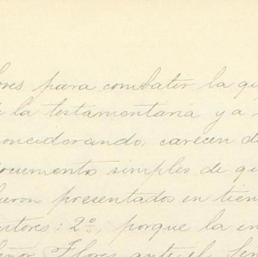 ores para combatir la qu
e la testamentaria y a
oncidorando, carecen d
ocumento simples de qu
ueron presentados en tien
utores: 2º, porque la en
eñor Flores ante el Sen